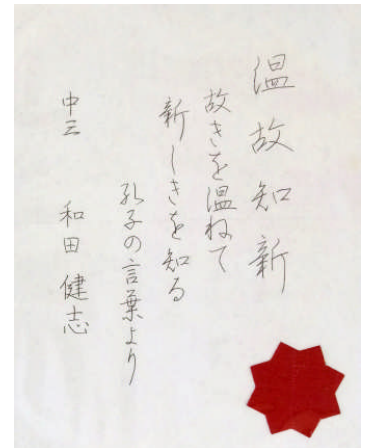 温故知新
故きを温ねて
新しきを知る
孔子の言葉より
中三 和田健志